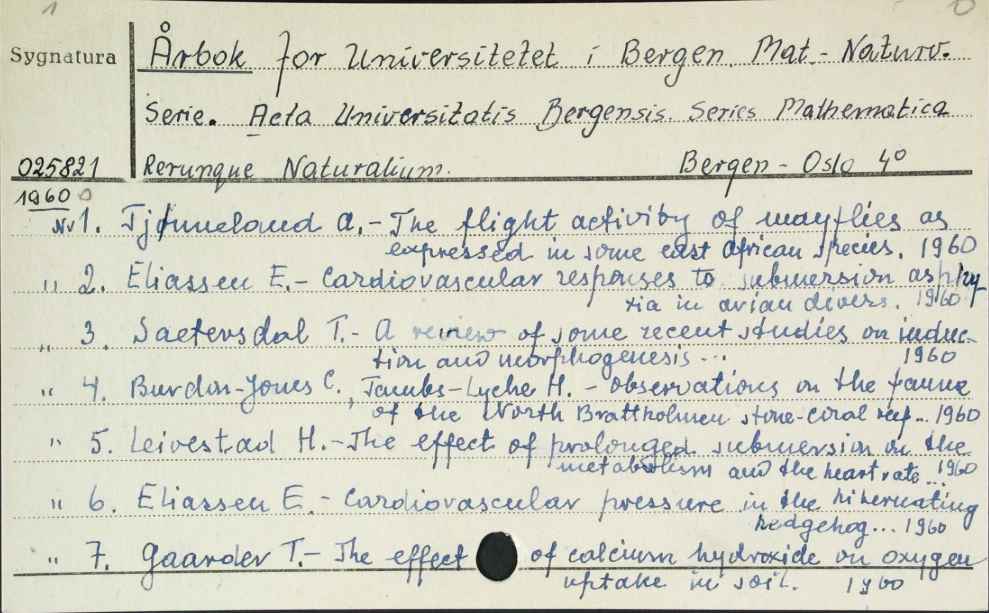 1
Sygnatura
Årbok for Universitetet i Bergen. Mat.- Naturv.
Serie. Acta Universitatis Bergensis. Series Mathematica
025821
Rerunque Naturalium. Bergen - Oslo 4°
1960
Nr 1. Tjønneland A.- The flight activity of mayflies as
expressed in some east african species. 1960
" 2. Eliassen E.- Cardiovascular responses to submersion asphy
xia in avian divers. 1960
" 3. Saetersdal T.- A review of some recent studies on induc-
tion and morphogenesis... 1960
" 4. Burdon-Jones C., Tambs-Lyche H. - Observations on the fauna
of the North Brattholmen stone-coral reef... 1960
" 5. Leivestad H.- The effect of prolonged submersion on the
metabolism and the heart rate... 1960
" 6. Eliassen E.- Cardiovascular pressure in the hibernating
hedgehog... 1960
" 7. Gaarder T.- The effect of calcium hydroxide on oxygen
uptake in soil. 1960